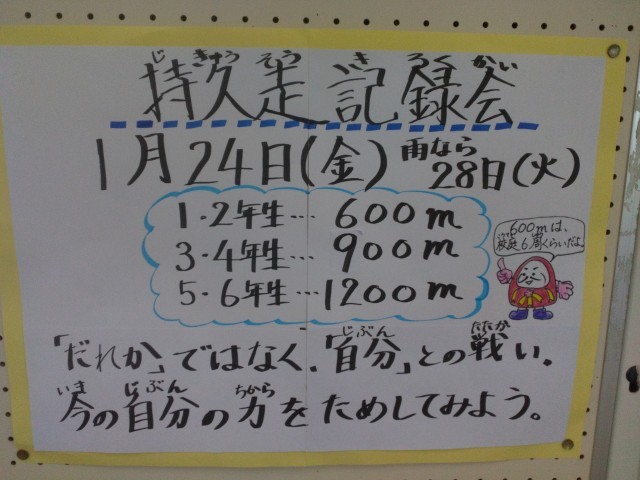 じきゅうそうきろくかい
持久走記録会
1月24日(金) 雨なら28日(火)
1・2年生… 600m
3・4年生… 900m
5・6年生… 1200m
600mは、
校庭6周くらいだよ。
じぶん たたか
「だれか」ではなく、「自分」との戦い。
いま じぶん ちから
今の自分の力をためしてみよう。